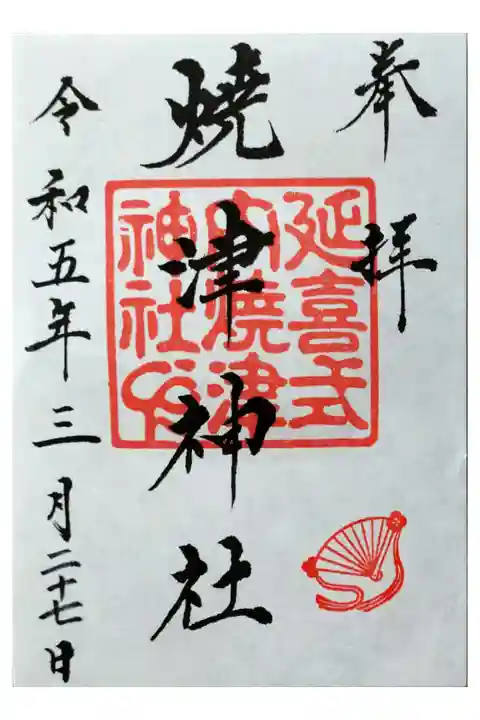 奉拝
燒津神社
令和五年三月二十七日
延喜式
内燒津
神社之印